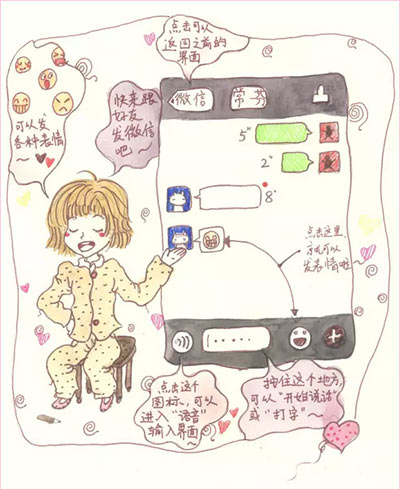 点击可以
返回之前的
界面
微信 常芬
快来跟
好友
发微信
吧～
可以发
各种表情
～
5"
2"
8"
点击这里
就可以
发表情啦
点击这个
图标，可以
进入“语音”
输入界面～
按住这个地方，
可以“开始说话”
或“打字”～